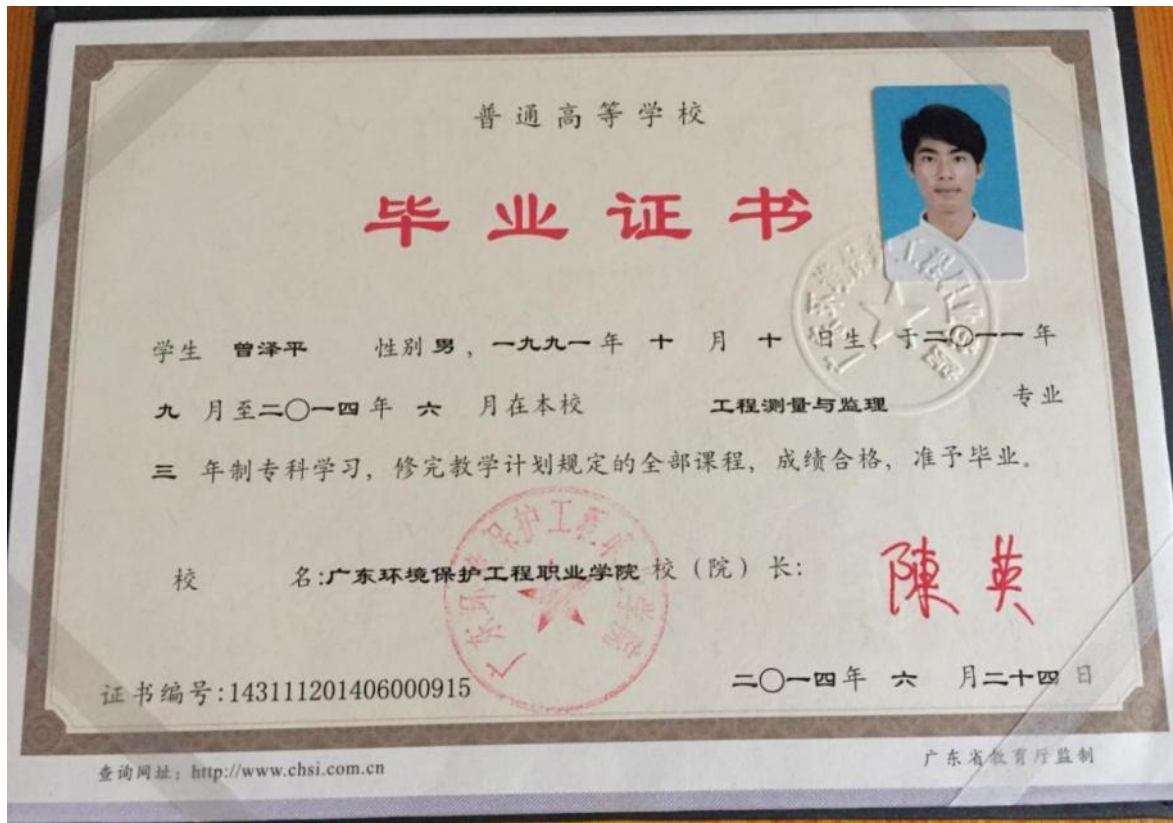 普通高等学校
毕业证书
学生 曾泽平 性别 男，一九九一年 十 月 十 日生，于二〇一一年
九 月至二〇一四年 六 月在本校 工程测量与监理 专业
三 年制专科学习，修完教学计划规定的全部课程，成绩合格，准予毕业。
校 名:广东环境保护工程职业学院 校（院）长:
陳英
证书编号:143111201406000915
二〇一四年 六 月二十四日
查询网址：http://www.chsi.com.cn
广东省教育厅监制